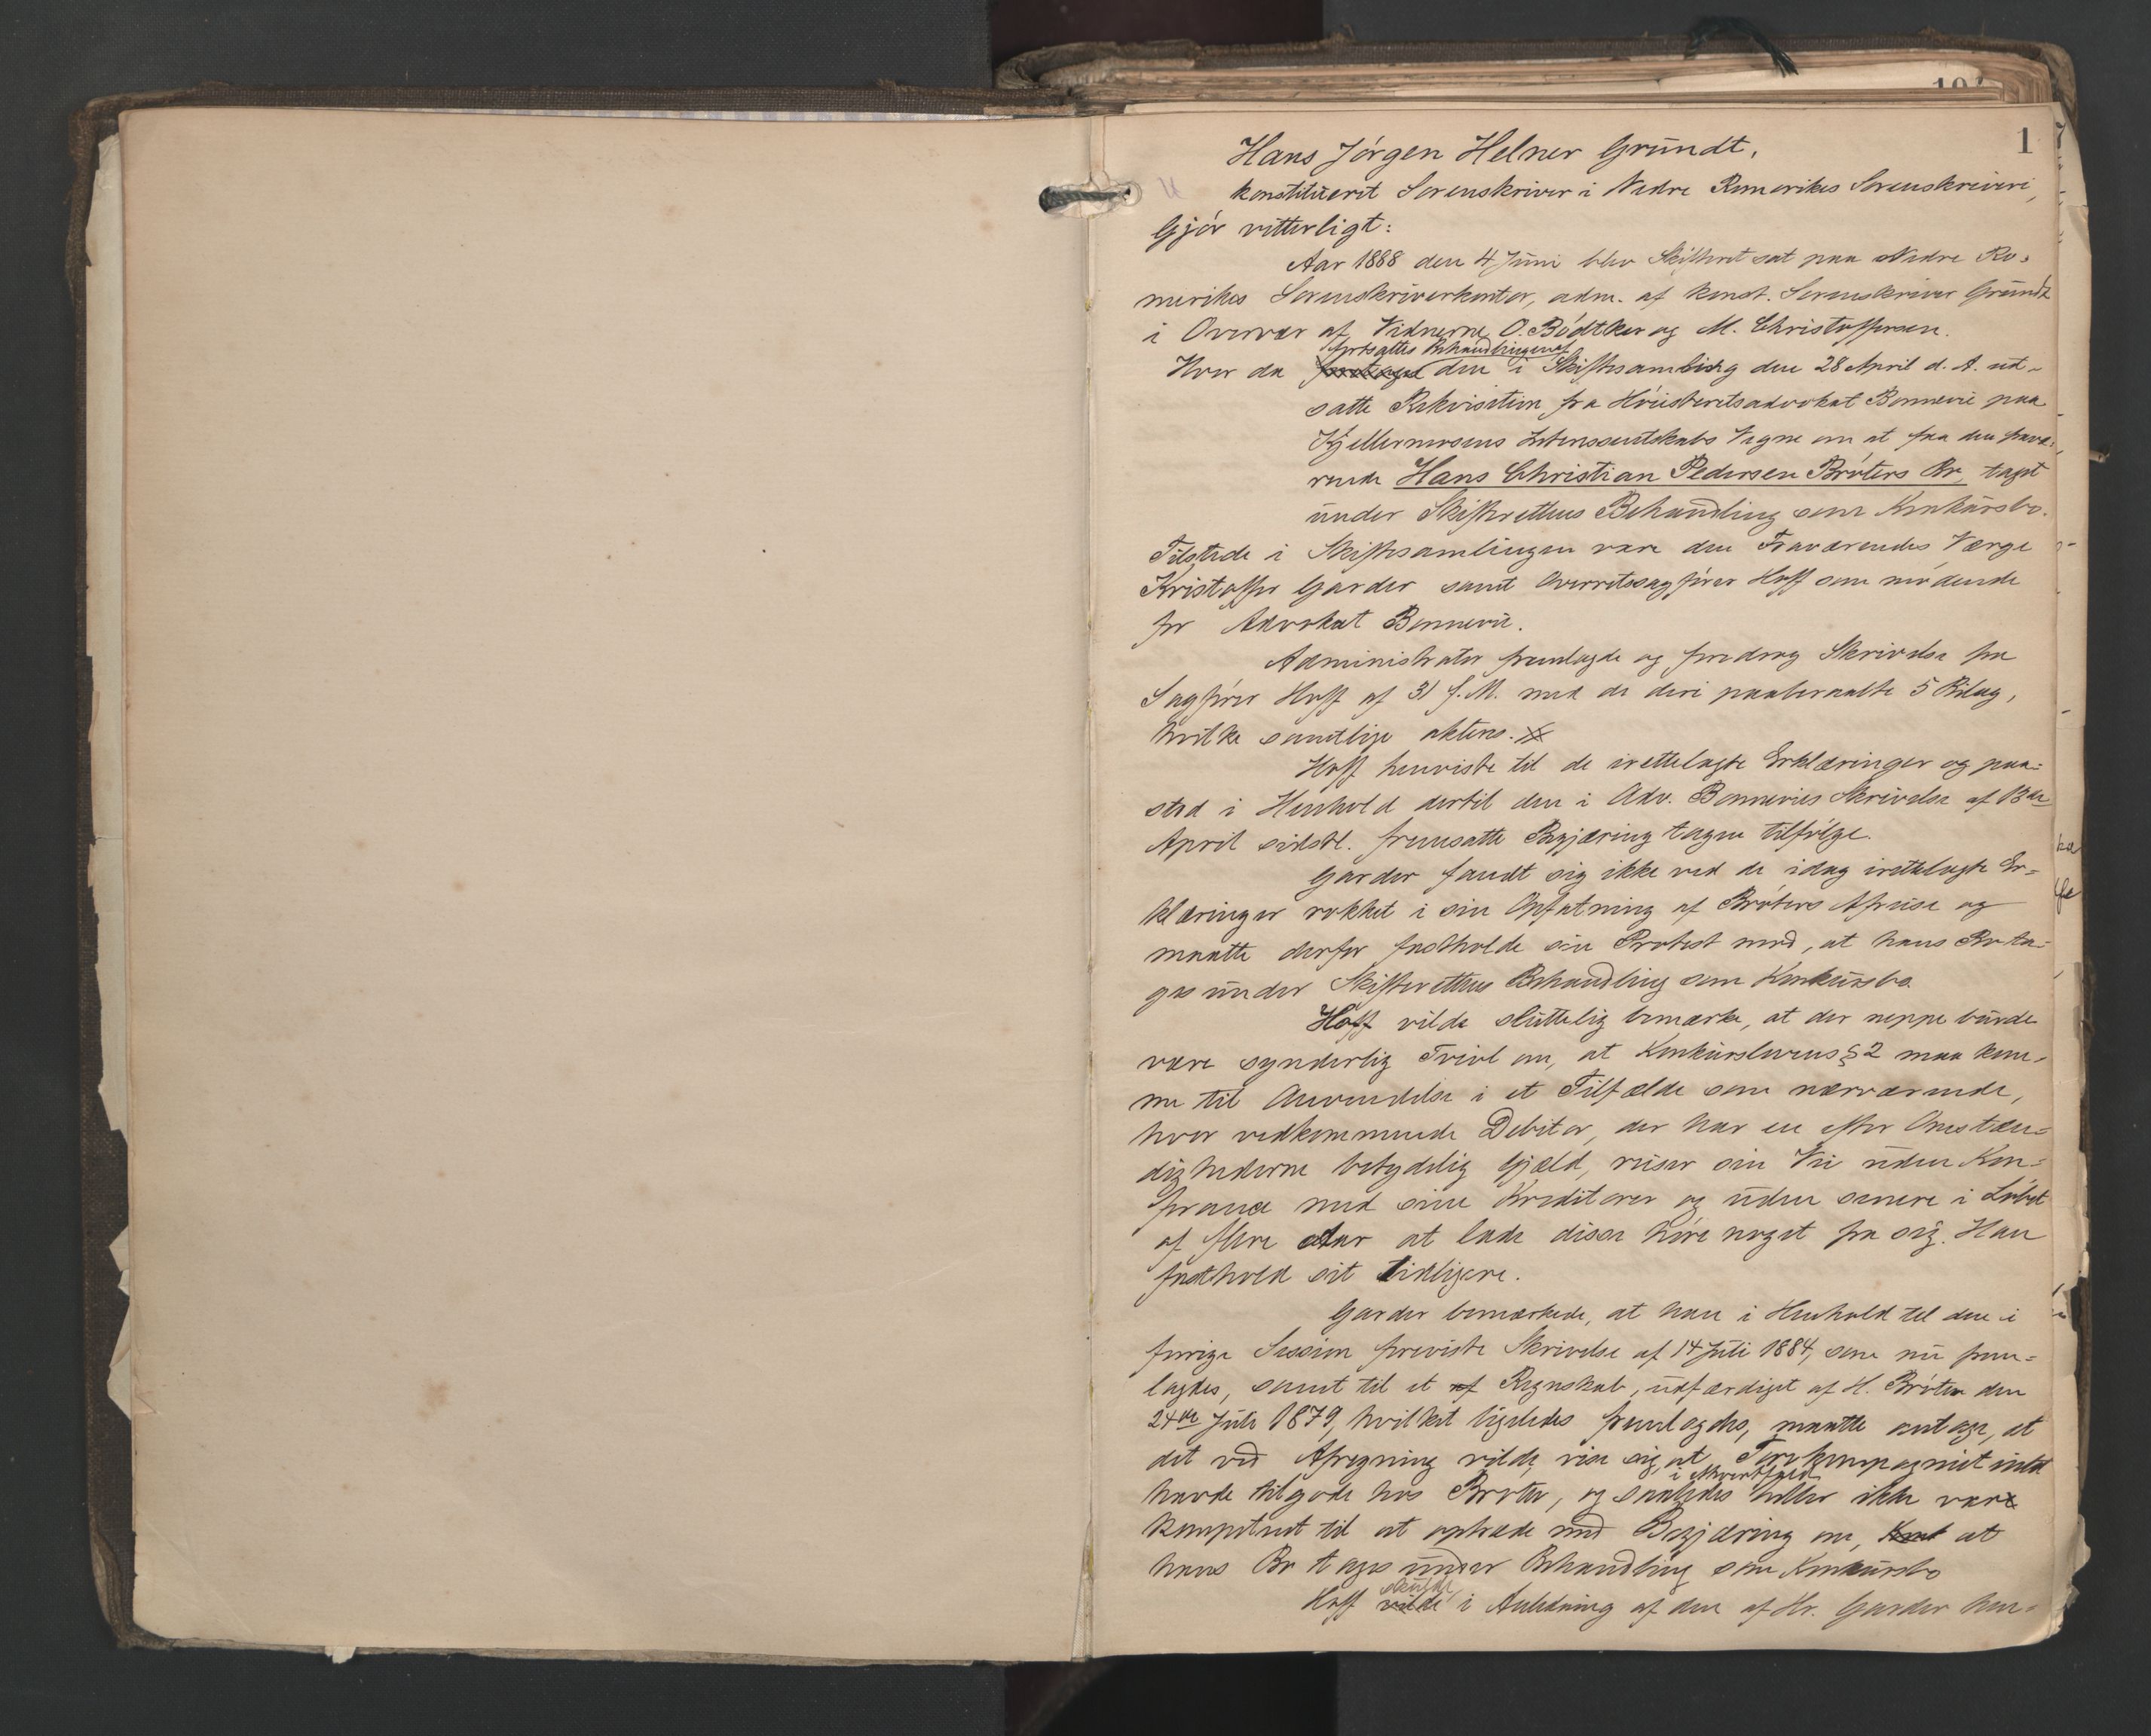 1
Hans Jörgen Helner Gründt,
konstitueret Sorenskriver i Nedre Romerikes Sorenskriveri,
Gjör vitterligt:
Aar 1888 den 4 Juni blev Skifteret sat paa Nedre Ro-
merikes Sorenskriverkontor, adm. af konst. Sorenskriver Gründt
i Overvær af Vidnerne O. Bödtker og M. Christoffersen.
fortsattes Behandlingen af
Hvor da foretages den i Skiftesamling den 28 April d. A. ud-
satte Rekvisition fra Höiesteretsadvokat Bonnevie paa
Kjellermosens Interessentskabs Vegne om at faa den fravæ-
rende Hans Christian Pedersen Bröters Bo, taget
under Skifterettens Behandling som Konkursbo.
Tilstede i Skiftesamlingen vare den Fraværendes Værge
Kristoffer Garder samt Overretssagförer Hoff som mödende
for Advokat Bonnevie.
Administrator fremlagde og foredrog Skrivelse fra
Sagförer Hoff af 31 f. M. med de deri paaberaabte 5 Bilag,
hvilke samtlige akteres.
Hoff henviste til de irettelagte Erklæringer og paa-
stod i Henhold dertil den i Adv. Bonnevies Skrivelse af 13de
April sidstl. fremsatte Begjæring tagen tilfölge.
Garder fandt sig ikke ved de idag irettelagte Er-
klæringer rokket i sin Opfatning af Bröters Afreise og
maatte derfor fastholde sin Protest mod, at hans Bo ta-
ges under Skifterettens Behandling som Konkursbo.
Hoff vilde sluttelig bemærke, at der neppe burde
være synderlig Tvivl om, at Konkurslovens § 2 maa kom-
me til Anvendelse i et Tilfælde som nærværende,
hvor vedkommende Debitor, der har en efter Omstæn-
dighederne betydelig Gjæld, reiser sin Vei uden Kon-
ferance med sine Kreditorer og uden senere i Löbet
af flere Aar at lade disse höre noget fra sig. Han
fastholdt sit Tidligere.
Garder bemærkede, at han i Henhold til den i
forrige Session foreviste Skrivelse af 14 Juli 1884, som nu frem-
lagdes, samt til et af Regnskab, udfærdiget af H. Bröter den
24de Juli 1879, hvilket ligeledes fremlagdes, maatte antage, at
det ved Afregning vilde vise sig, at Torvkompagniet intet
i Skiftesamling
havde tilgode hos Bröter, og saaledes heller ikke være
kompetent til at optræde med Begjæring om, at
hans Bo tages under Behandling som Konkursbo
skulde
Hoff vilde i Anledning af den af Hr. Garder hen-